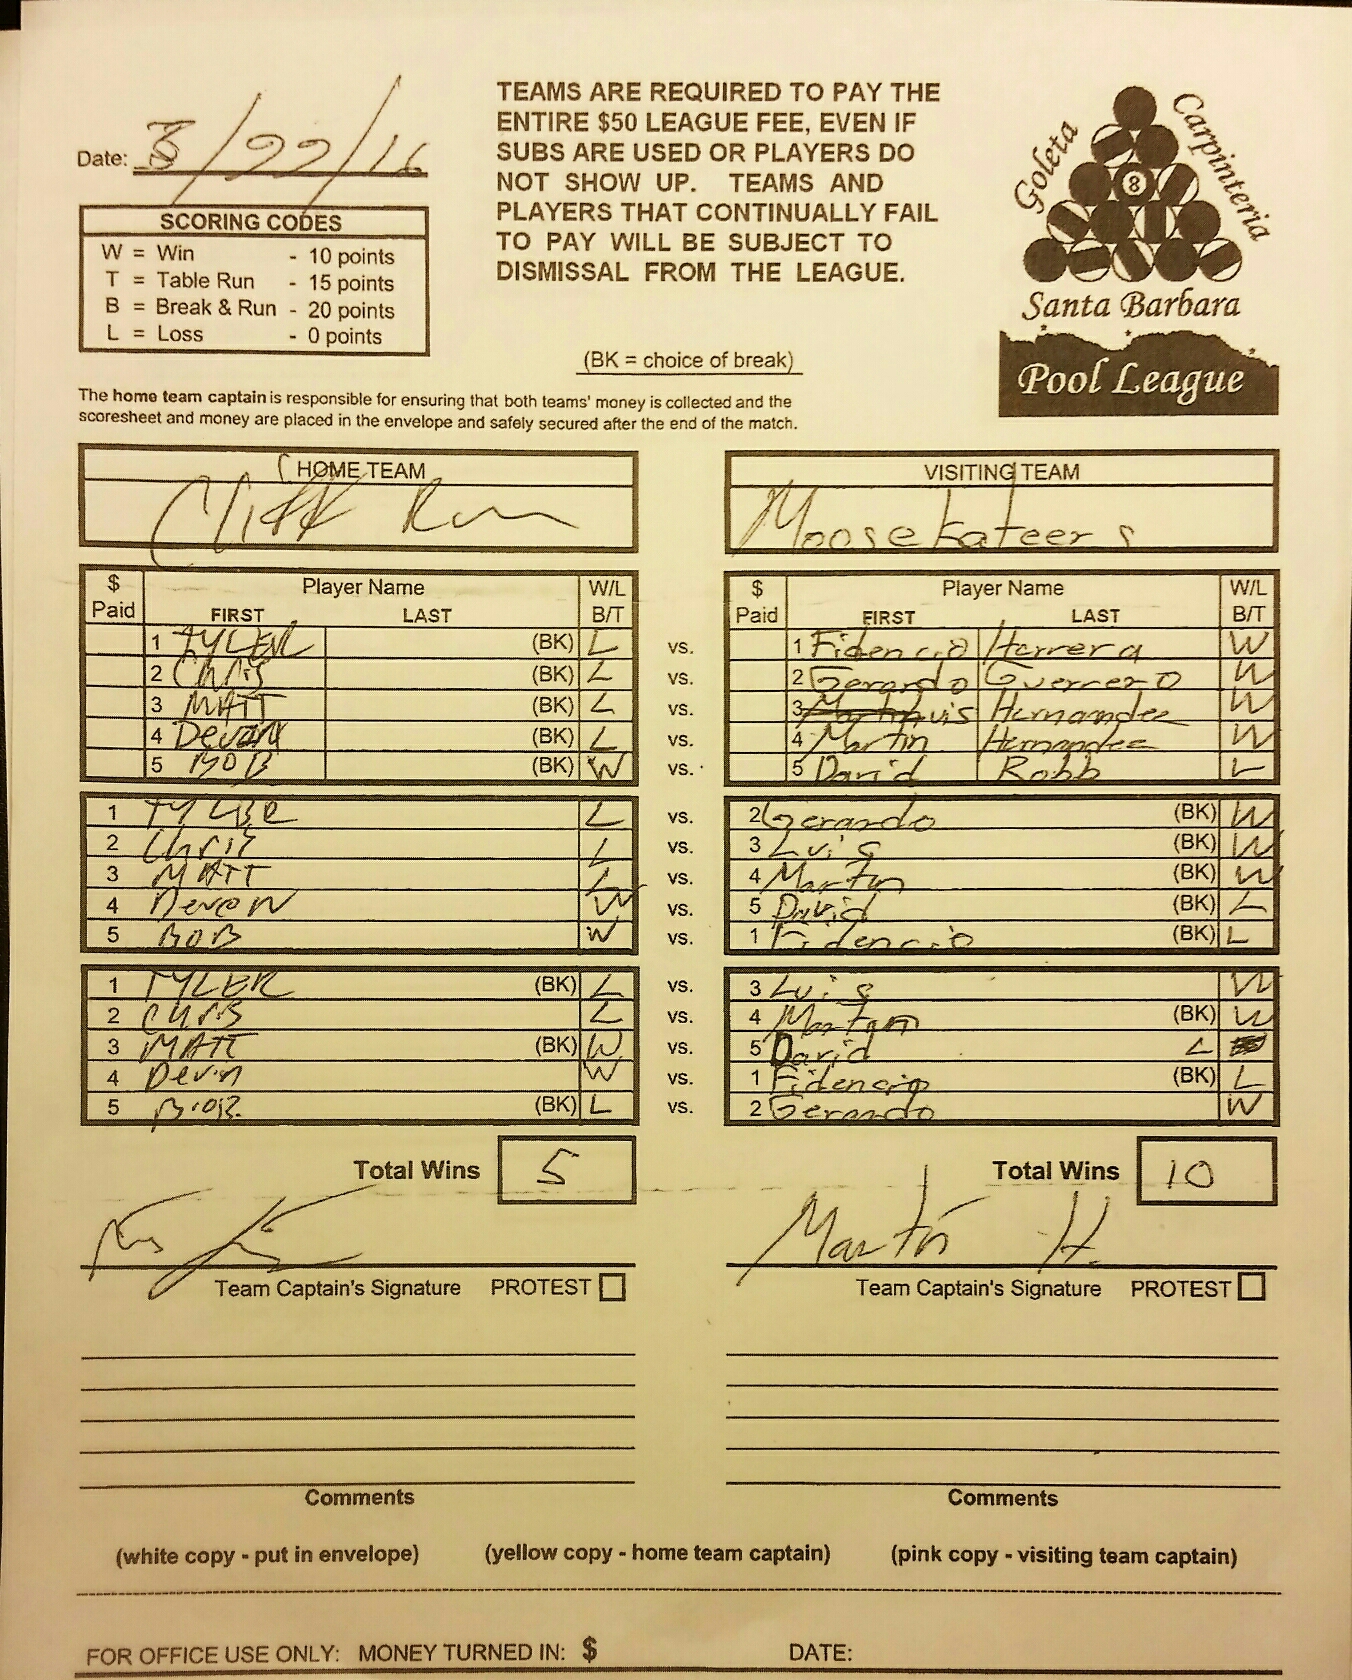 Date: 3/22/16
SCORING CODES
W = Win - 10 points
T = Table Run - 15 points
B = Break & Run - 20 points
L = Loss - 0 points
TEAMS ARE REQUIRED TO PAY THE
ENTIRE $50 LEAGUE FEE, EVEN IF
SUBS ARE USED OR PLAYERS DO
NOT SHOW UP. TEAMS AND
PLAYERS THAT CONTINUALLY FAIL
TO PAY WILL BE SUBJECT TO
DISMISSAL FROM THE LEAGUE.
(BK = choice of break)
Goleta
Carpinteria
8
Santa Barbara
Pool League
The home team captain is responsible for ensuring that both teams' money is collected and the
scoresheet and money are placed in the envelope and safely secured after the end of the match.
HOME TEAM VISITING TEAM
Cliff Run Moosekateers
$ Paid Player Name W/L $ Paid Player Name W/L
FIRST LAST B/T FIRST LAST B/T
1 TYLER (BK) L vs. 1 Fidencio Herrera W
2 Chris (BK) L vs. 2 Gerardo Guerrero W
3 MATT (BK) L vs. 3 Luis Hernandez W
4 Devon (BK) L vs. 4 Martin Hernandez W
5 BOB (BK) W vs. 5 David Robb L
1 TYLER L vs. 2 Gerardo (BK) W
2 Chris L vs. 3 Luis (BK) W
3 MATT L vs. 4 Martin (BK) W
4 Devon W vs. 5 David (BK) L
5 BOB W vs. 1 Fidencio (BK) L
1 TYLER (BK) L vs. 3 Luis W
2 CHRIS L vs. 4 Martin (BK) W
3 MATT (BK) W vs. 5 David L
4 Devin W vs. 1 Fidencio (BK) L
5 BOB (BK) L vs. 2 Gerardo W
Total Wins 5 Total Wins 10
Martin H.
Team Captain's Signature PROTEST Team Captain's Signature PROTEST
Comments Comments
(white copy - put in envelope) (yellow copy - home team captain) (pink copy - visiting team captain)
FOR OFFICE USE ONLY: MONEY TURNED IN: $ DATE: